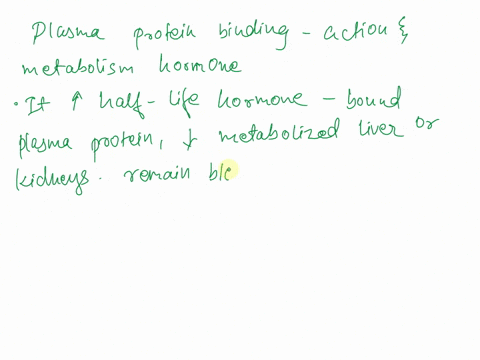 Plasma protein binding - action &
metabolism hormone
• It ↑ half-life hormone - bound
plasma protein, ↓ metabolized liver or
kidneys. remain blo